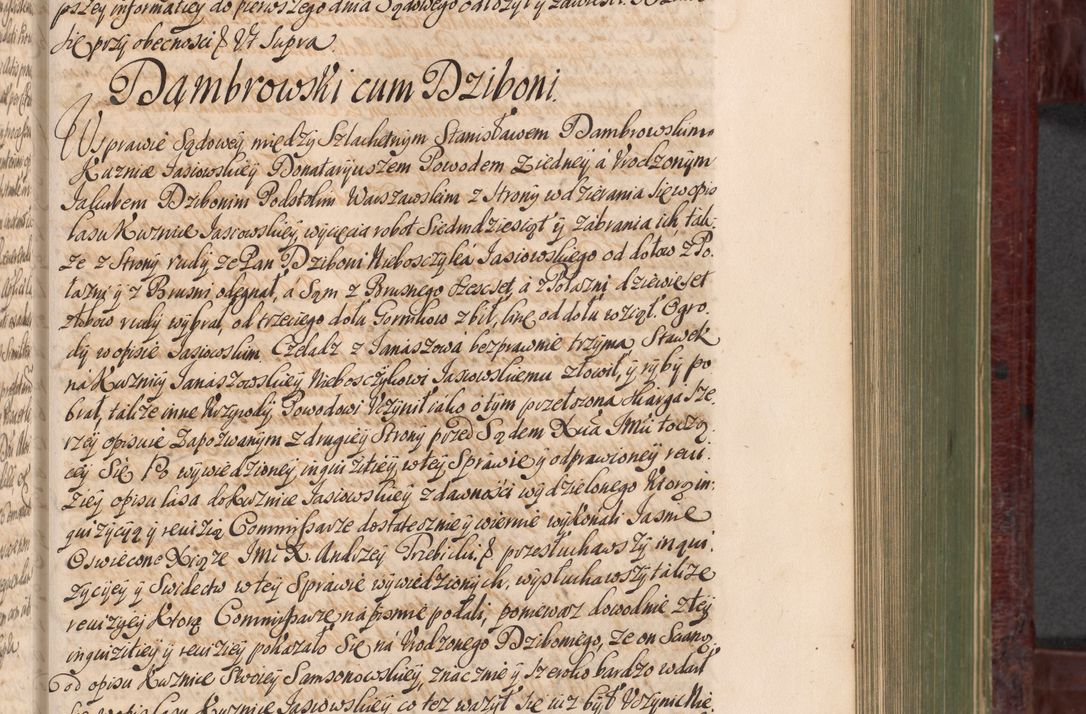 pszey informatiey do pierwszego dnia Sądowego odłożył y zawiesił.
Się przy obecności &. Vt Supra.
Dąmbrowski cum Dziboni.
W Sprawie Sądowey między Szlachetnym Stanisławem Dambrowskim
Kuznice Jasiowskiey Donataryuszem Powodem z iedney á Urodzonym
Jakubem Dzibonim Podstolim Warszawskim z Strony wdzierania się w opis
lasu Kuznice Jasiowskiey, wycięcia robot Siedmdziesiąt y zabrania ich, tak
że z Strony rudy że Pan Dziboni Nieboszczyká Jasiowskiego od dołow z Po
łazni y z Brusni odegnał, a Sąm z Brusnego sześćset, a z Połazni dziewięćset
żłobow rudy wybrał, od trzeciego dołu Gornikow zbił, linę od dołu wziął. Ogro
dy w opisie Jasiowskim, Czeladź z Janaszowá bezprawnie trzyma Stawek
na Kuznicy Janaszowskiey Nieboszczykowi Jasiowskiemu złowił, y ryby po
brał, także inne Krzywdy Powodowi Uczynił iako o tym przełożona skarga sze
rzey opisuie Zapozwanym z drugiey Strony przed Sądem Xcia Jmci toczą
cey Się. Po wywiedzioney inquizitiey w tey Sprawie y odprawioney rewi
ziey opisu lasa do Kuznice Jasiowskiey z dawności wydzielonego Ktorą in
quizycyą y rewizią Commissarze dostatecznie y wiernie wykonali Jasnie
Oswiecone Xiąże Jmć X. Andrzey Trzebicki. &. przesłuchawszy inqui
zycyey y Swiadectw w tey Sprawie wywiedzionych, wysłuchawszy także
rewizyey Ktorą Commissarze na pismie podali, ponieważ dowodnie z tey
inquizitiey y rewiziey pokazało Się na Urodzonego Dziboniego, że on Scianą
od opisu Kuznice Swoiey Samsonowskiey znacznie y szeroko bardzo wdarł
się w opis lasu Kuznice Jasiowskiey co też ważył się iuż był Uczynić Nie